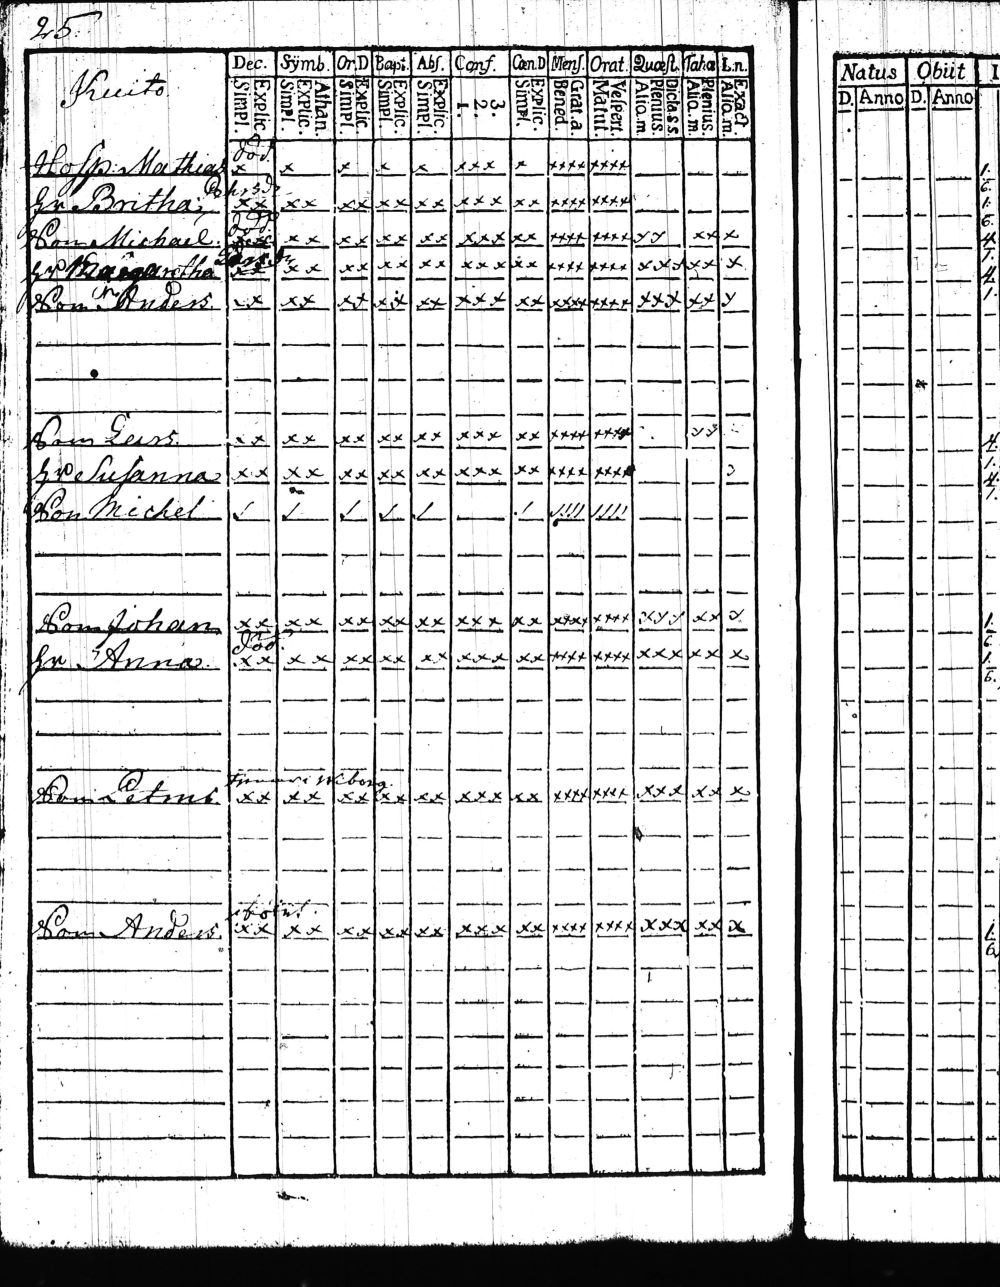 25.
Kuito
Dec. Sÿmb. Or.D Bapt. Abs. Conf. Cœn.D Mens. Orat. Quæst. Tabæ L.n.
Explic. Simpl. Athan. Explic. Simpl. Explic. Simpl. Explic. Simpl. Explic. Simpl. 3. 2. 1. Explic. Simpl. Grat.a Bened. Vespert. Matut. Dicta s s Plenius. Aliq.m Plenius. Aliq.m Exact. Aliq.m
Natus Obiit
D. Anno D. Anno
död.
Hosp: Mathias x x x x x xxx x xxxx xxxx
Hr Britha xx xx xx xx xx xxx xx xxxx xxxx
död.
Son Michael. xx xx xx xx xxx xx xxxx xxxx
Hr Margaretha xx xx xx xx xx xxx xx xxxx xxxx xxx xx x
Son Anders. xx xx xx xx xx xxx xx xxxx xxxx xxx xx
Son Lars. xx xx xx xx xx xxx xx xxxx xxxx
Hr Susanna xx xx xx xx xx xxx xx xxxx xxxx
Son Michel / / / / / / //// ////
Son Johan xx xx xx xx xx xxx xx xxxx xxxx xx
död.
Hr Anna. xx xx xx xx xx xxx xx xxxx xxxx xxx xx x
Wiborg.
Son Petrus. xx xx xx xx xx xxx xx xxxx xxxx xxx xx x
Son Anders. xx xx xx xx xx xxx xx xxxx xxxx xxx xx x